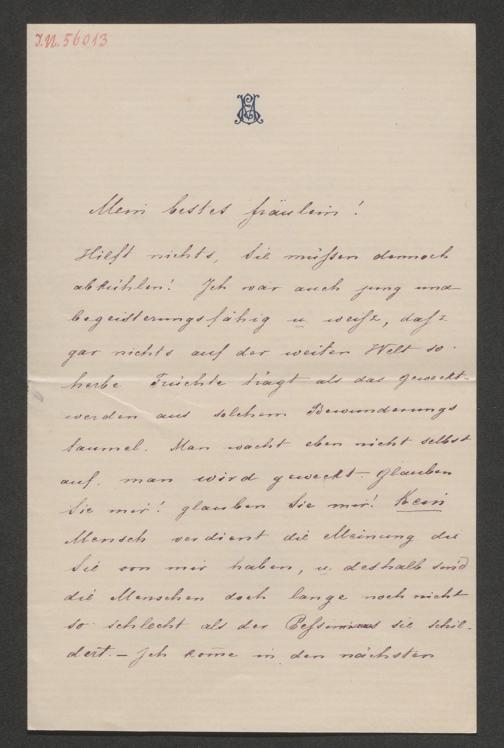 I.N. 56013
Mein bestes Fräulein!
Hilft nichts, Sie müßen dennoch
abkühlen! Ich war auch jung und
begeisterungsfähig u weiß, daß
gar nichts auf der weiten Welt so
herbe Früchte trägt als das geweckt-
werden aus solchem Bewunderungs
taumel. Man wacht eben nicht selbst
auf, man wird geweckt. Glauben
Sie mir! glauben Sie mir! Kein
Mensch verdient die Meinung die
Sie von mir haben, u. deshalb sind
die Menschen doch lange noch nicht
so schlecht als der Peßimismus sie schil-
dert. – Ich kome in den nächsten